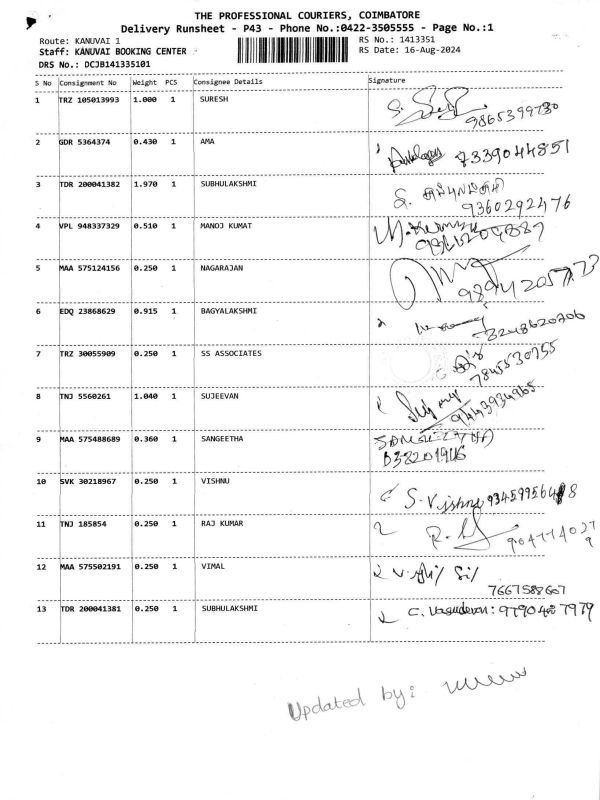 THE PROFESSIONAL COURIERS, COIMBATORE
Delivery Runsheet - P43 - Phone No.:0422-3505555 - Page No.:1
Route: KANUVAI 1 RS No.: 1413351
Staff: KANUVAI BOOKING CENTER RS Date: 16-Aug-2024
DRS No.: DCJB141335101
S No Consignment No Weight PCS Consignee Details Signature
1 TRZ 105013993 1.000 1 SURESH
9865399730
2 GDR 5364374 0.430 1 AMA 7339044851
3 TDR 200041382 1.970 1 SUBHULAKSHMI
9360292476
4 VPL 948337329 0.510 1 MANOJ KUMAT
5 MAA 575124156 0.250 1 NAGARAJAN
6 EDQ 23868629 0.915 1 BAGYALAKSHMI
8248620706
7 TRZ 30055909 0.250 1 SS ASSOCIATES
7845530755
8 TNJ 5560261 1.040 1 SUJEEVAN
9443934965
9 MAA 575488689 0.360 1 SANGEETHA
10 SVK 30218967 0.250 1 VISHNU S. Vishnu
11 TNJ 185854 0.250 1 RAJ KUMAR
12 MAA 575502191 0.250 1 VIMAL
7667588607
13 TDR 200041381 0.250 1 SUBHULAKSHMI C. Vasudevan:
Updated by: